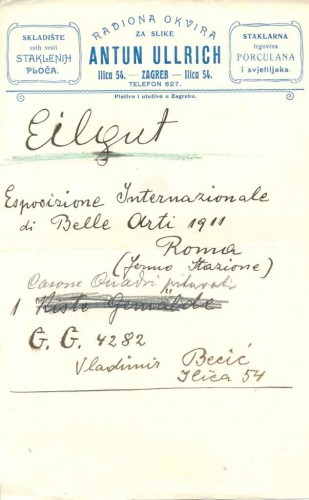 SKLADIŠTE
svih vrsti
STAKLENIH
PLOČA.
RADIONA OKVIRA
ZA SLIKE
ANTUN ULLRICH
Ilica 54. — ZAGREB — Ilica 54.
TELEFON 627.
STAKLARNA
trgovina
PORCULANA
i svjetiljaka.
Plativo i utuživo u Zagrebu.
Eilgut
Esposizione Internazionale
di Belle Arti 1911
Roma
(Fermo Stazione)
Casone Quadri pitturati
1 Kiste Gemälde
G. G. 4282
Vladimir Becić
Ilica 54